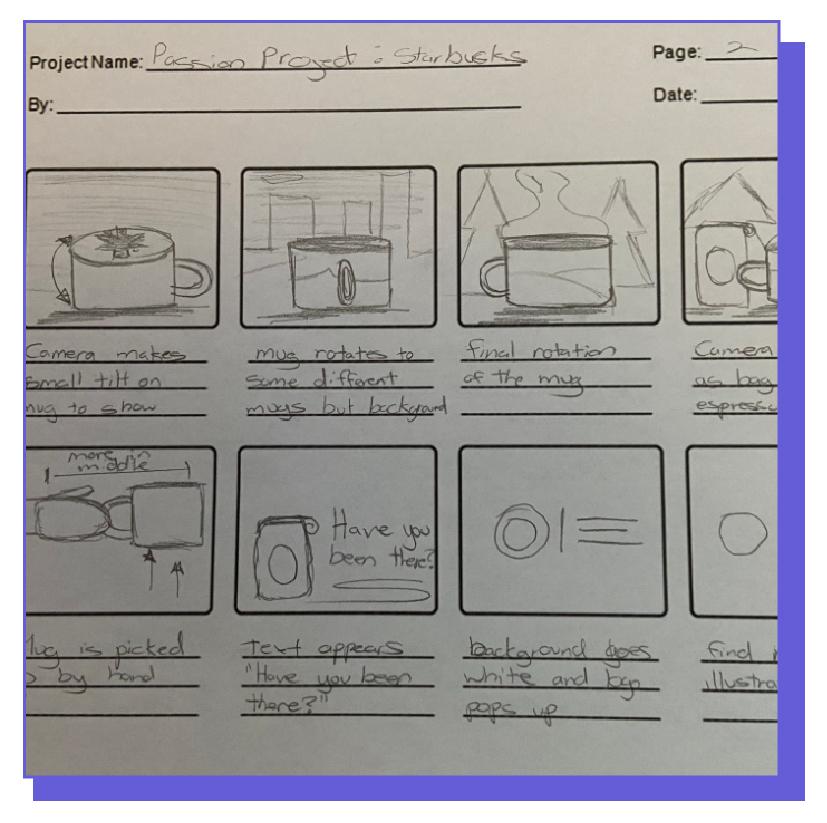 Project Name: Passion Project : Starbusks
Page: 2
By:
Date:
Camera makes
small tilt on
mug to show
mug rotates to
some different
mugs but backgorund
final rotation
of the mug
Camera
as bag
espresso
more in
middle
Have you
been there?
Mug is picked
by hand
text appears
"Have you been
there?"
background goes
white and logo
pops up
find
illustra